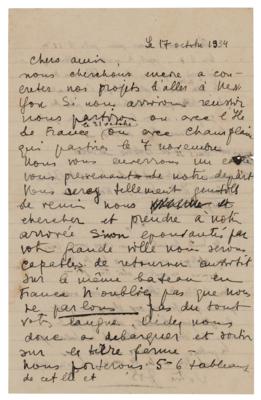 Le 17 octobre 1934
chers amis,
nous cherchons encore a con-
creter nos projets d'aller à New
York Si nous arrivions reussir
nous partirons ou avec l'Ile
le 21 octobre
de France, ou avec Champlain
qui partira le 7 novembre
Nous vous enverrons un
vous prevenant de notre depart
Vous serez tellement gentils
de venir nous et
chercher et prendre a notre
arrivée Sinon epouvantés par
votre grande ville nous serons
capables de retourner aussitôt
sur le même bateau en
France N'oubliez pas que nous
ne parlons pas du tout
votre langue. Aidez nous
donc a debarquer et sortir
sur la terre ferme -
Nous porterons 5-6 tableaux
de cet été et